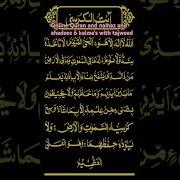 آیت الکرسی
Online Quran and namaz and
ahadees 6 kalma's with tajweed
اَللّٰهُ لَآ اِلٰهَ اِلَّا هُوَ اَلْحَیُّ الْقَیُّوْمُ لَا تَاْخُذُهٗ
سِنَةٌ وَّلَا نَوْمٌ لَهٗ مَا فِی السَّمٰوٰتِ وَمَا فِی الْاَرْضِ
مَنْ ذَا الَّذِیْ یَشْفَعُ عِنْدَهٗٓ اِلَّا بِاِذْنِهٖ یَعْلَمُ مَا
بَیْنَ اَیْدِیْهِمْ وَمَا خَلْفَهُمْ وَلَا یُحِیْطُوْنَ
بِشَیْءٍ مِّنْ عِلْمِهٖٓ اِلَّا بِمَا شَآءَ وَسِعَ
كُرْسِیُّهُ السَّمٰوٰتِ وَالْاَرْضَ وَلَا
یَئُوْدُهٗ حِفْظُهُمَا وَهُوَ الْعَلِیُّ
الْعَظِیْمُ